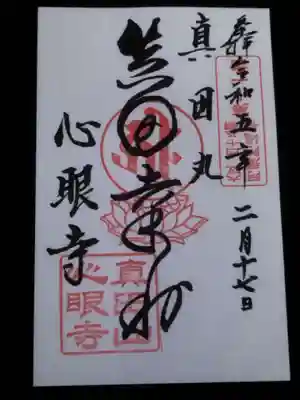 奉拝
令和五年
二月十七日
真田丸
真田幸村
心眼寺
真田山
心眼寺